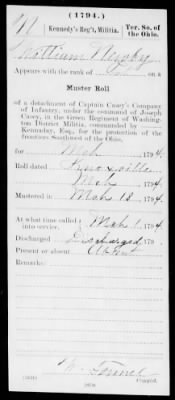 (1794.)
N Kennedy's Reg't, Militia. Ter. So. of the Ohio.
William
Appears with the rank of on a
Muster Roll
of a detachment of Captain Casey's Company
of Infantry, under the command of Joseph
Casey, in the Green Regiment of Washing-
ton District Militia, commanded by
Kennaday, Esq., for the protection of the
frontiers South-west of the Ohio,
for Mch, 1794.
Roll dated Knoxville
Mch, 1794.
Mustered in Mch 13, 1794.
At what time called into service, Mch 1, 1794
Discharged Discharged, 179
Present or absent
Remarks:
Copyist.